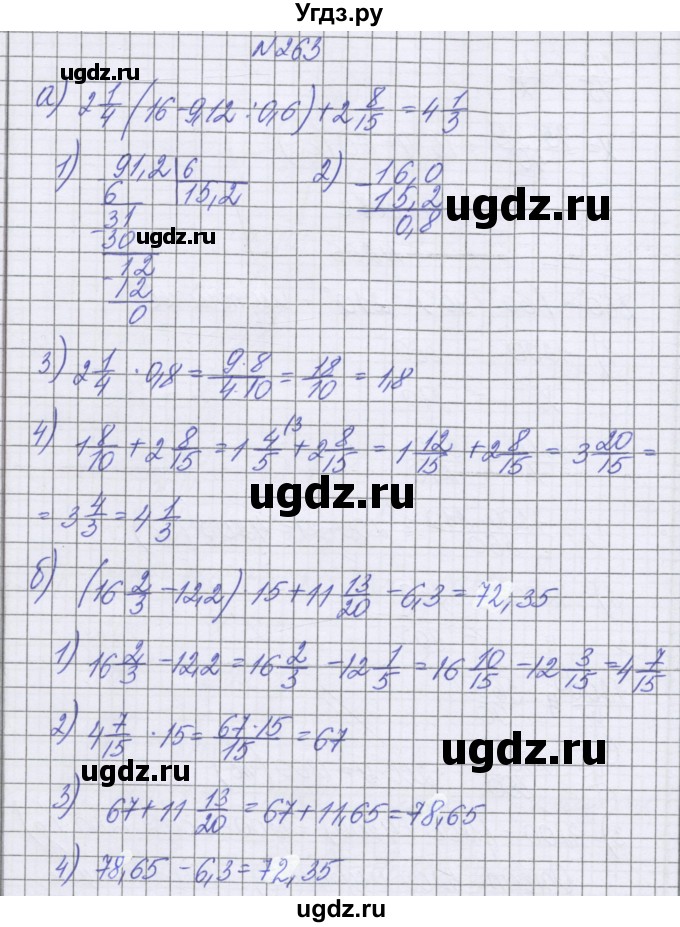 Угдз.ру
№263
ugdz.ru
а) 2 1/4 (16 - 9,12 : 0,6) + 2 8/15 = 4 1/3
1) 91,2 | 6
6 15,2
31
30
12
12
0
2) 16,0
15,2
0,8
ugdz.ru
ugdz.ru
3) 2 1/4 · 0,8 = 9·8/4·10 = 18/10 = 1,8
4) 1 8/10 + 2 8/15 = 1 4/5 (3 + 2 8/15 = 1 12/15 + 2 8/15 = 3 20/15 =
ugdz.ru
= 3 4/3 = 4 1/3
б) (16 2/3 - 12,2) 15 + 11 13/20 - 6,3 = 72,35
1) 16 2/3 - 12,2 = 16 2/3 - 12 1/5 = 16 10/15 - 12 3/15 = 4 7/15
2) 4 7/15 · 15 = 67·15/15 = 67
ugdz.ru
ugdz.ru
3) 67 + 11 13/20 = 67 + 11,65 = 78,65
4) 78,65 - 6,3 = 72,35
ugdz.ru